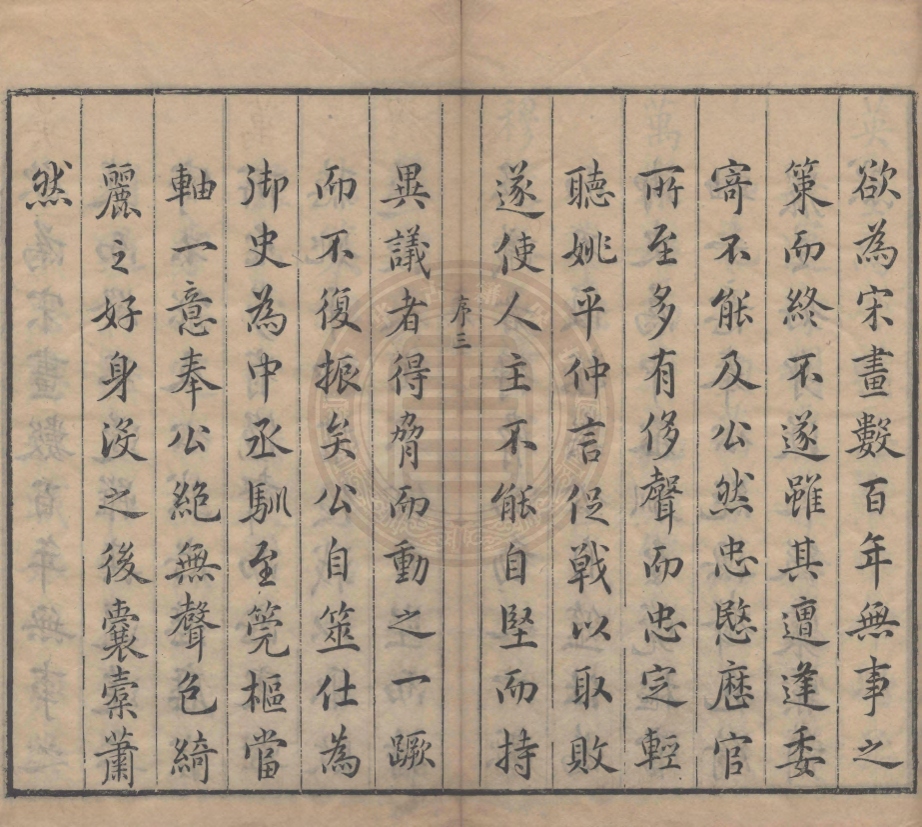 欲為宋畫數百年無事之
策而終不遂雖其遭逢委
寄不能及公然忠愍歷官
所至多有侈聲而忠定輕
聽姚平仲言促戰以取敗
遂使人主不能自堅而持
序三
異議者得脅而動之一蹶
而不復振矣公自筮仕為
御史為中丞馴至筦樞當
軸一意奉公絕無聲色綺
麗之好身沒之後囊橐蕭
然